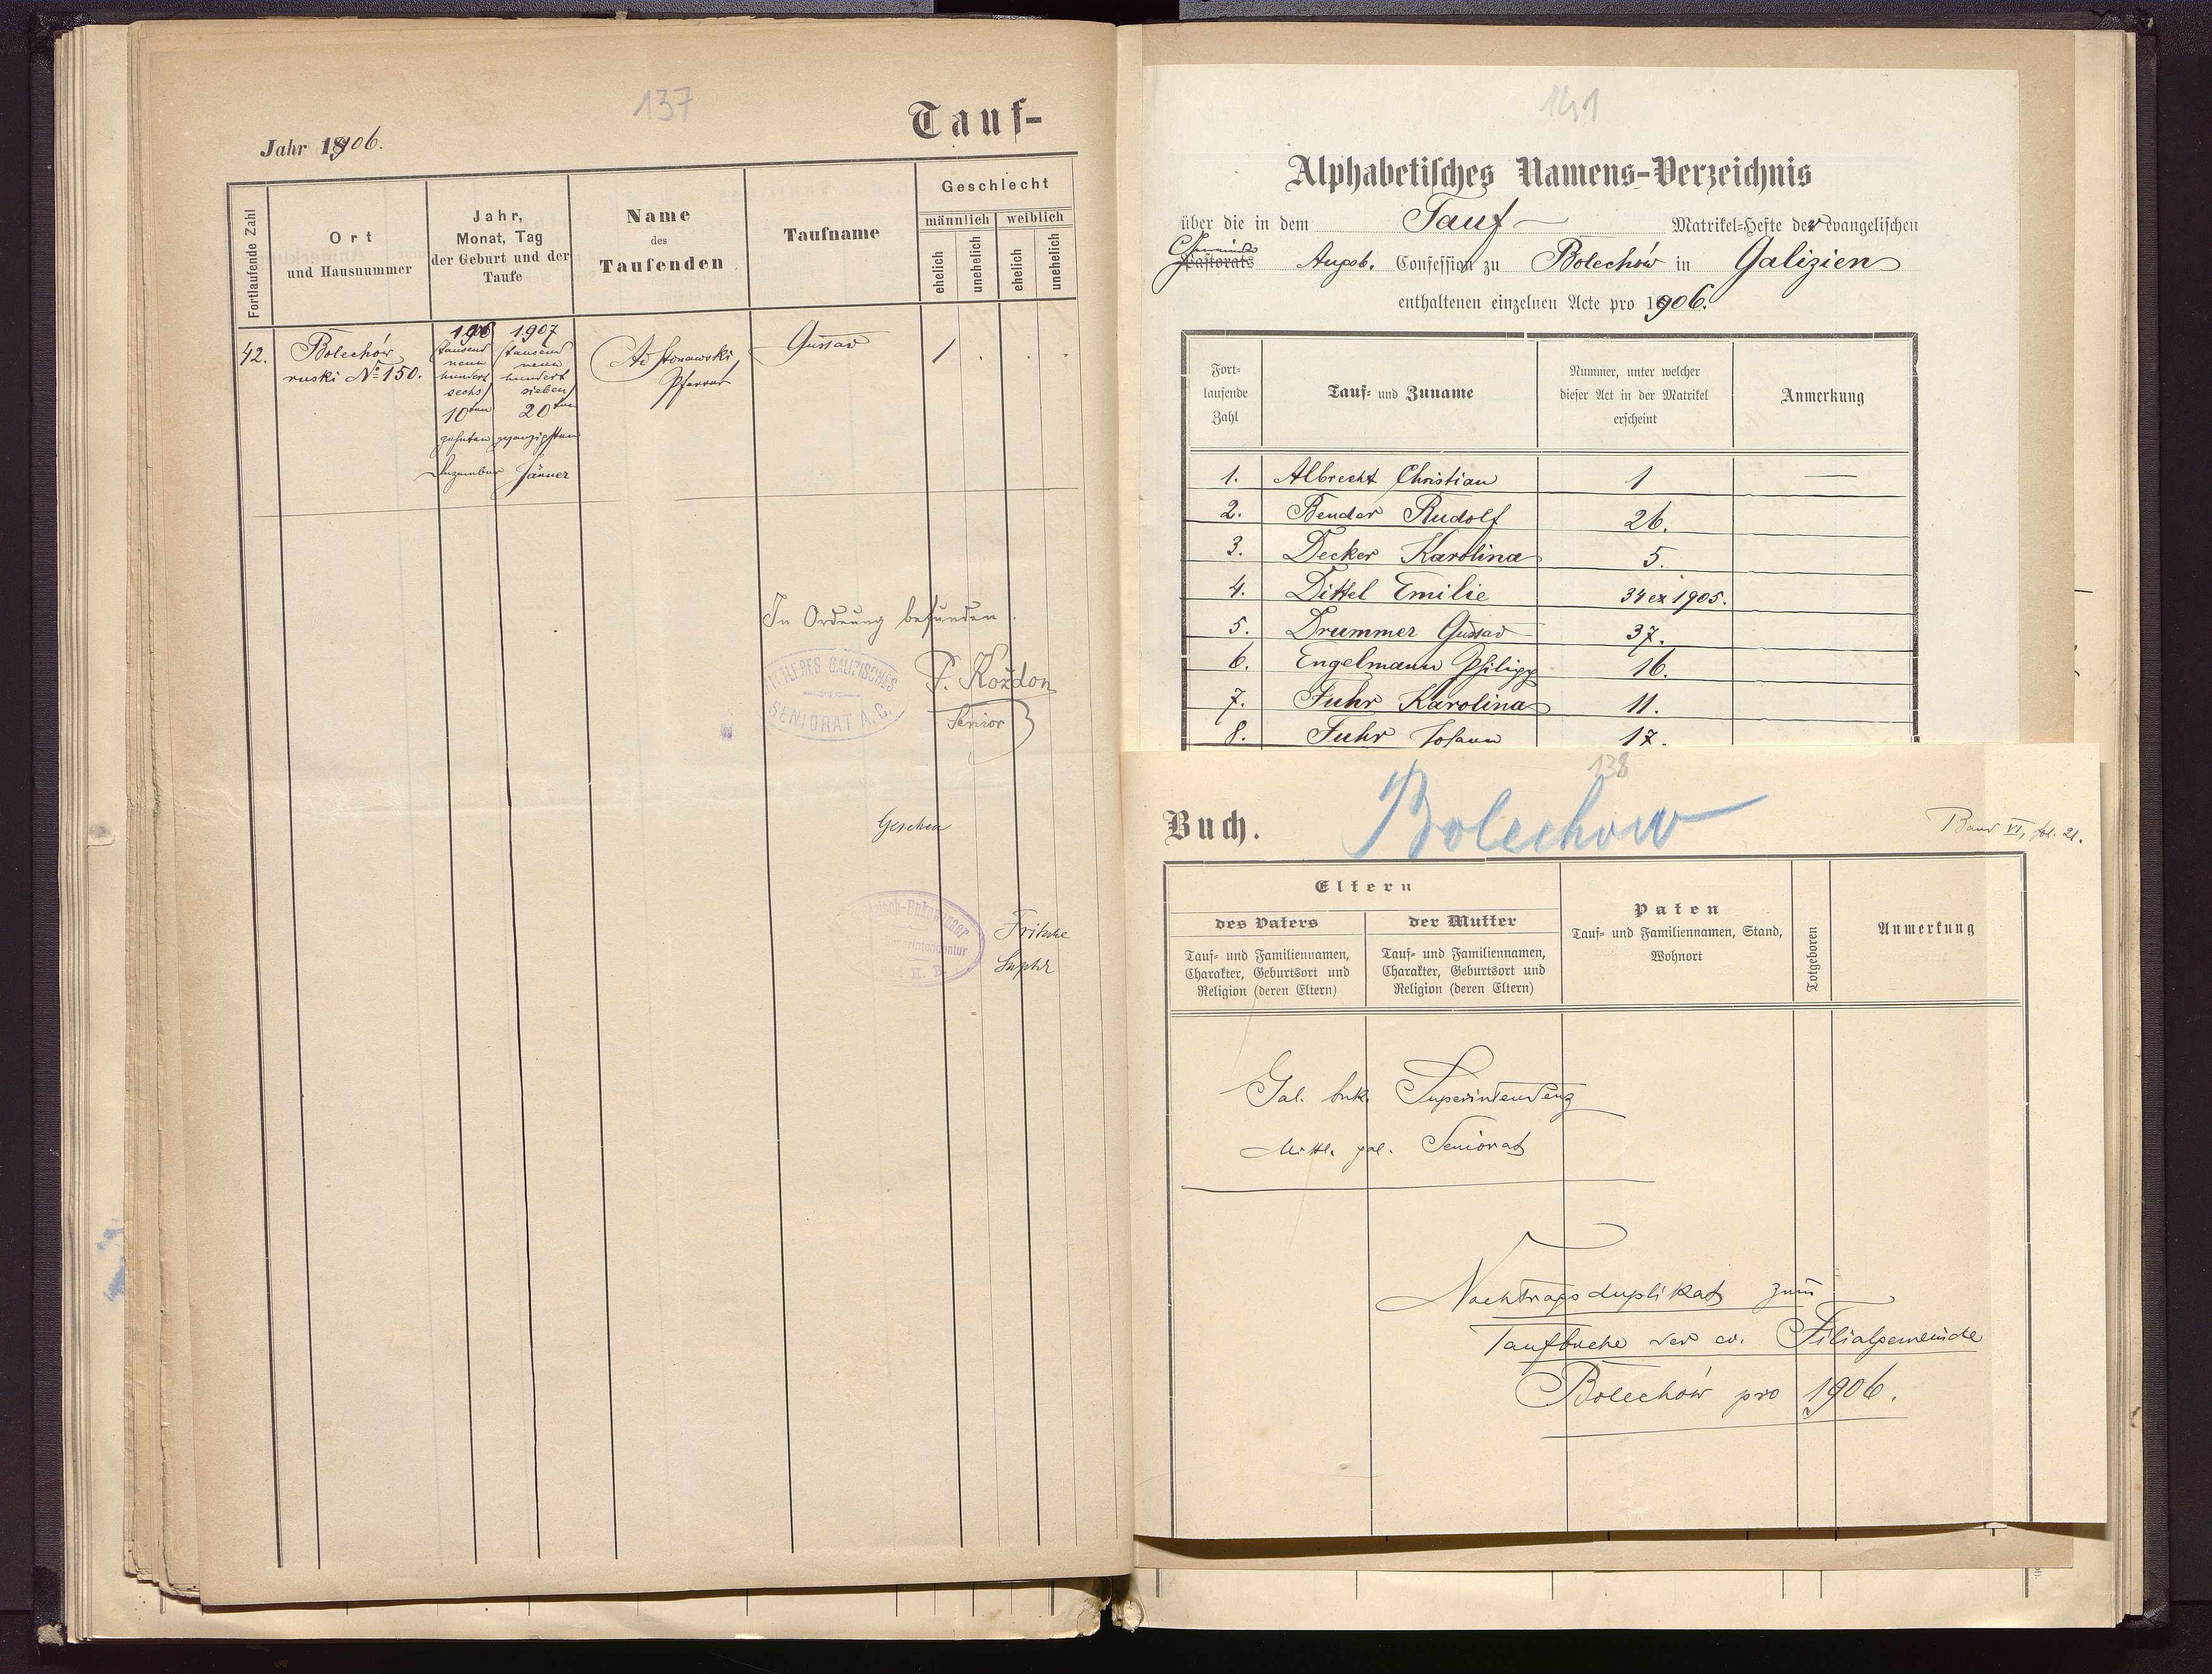 137
Tauf-
Jahr 1906.
Fortlaufende Zahl
Ort
und Hausnummer
Jahr,
Monat, Tag
der Geburt und der
Taufe
Name
des
Taufenden
Taufname
Geschlecht
männlich weiblich
ehelich unehelich ehelich unehelich
42. Bolechów
ruski № 150.
1906 1907
tausend tausend
neun neun
hundert hundert
sechs sieben
10ten 20ten
zehnten zwanzigsten
Dezember Jänner
Pfarrer
Gustav
1 . . .
In Ordnung befunden.
MITTLERES GALIZISCHES
SENIORAT A. C.
P. Kożdoń
Senior
Gesehen
Fritsche
Suptdt
141
Alphabetisches Namens-Verzeichnis
über die in dem Tauf- Matrikel-Hefte der evangelischen
Gemeinde
Pastorats Augsb. Confession zu Bolechów in Galizien
enthaltenen einzelnen Acte pro 1906.
Fort-
laufende
Zahl
Tauf- und Zuname
Nummer, unter welcher
dieser Act in der Matrikel
erscheint
Anmerkung
1. Albrecht Christian 1 —
2. Bender Rudolf 26.
3. Decker Karolina 5.
4. Dittel Emilie 34 ex 1905.
5. Drummer Gustav 37.
6. Engelmann Philipp 16.
7. Fuhr Karolina 11.
8. Fuhr Johann 17.
138
Buch.
Bolechow
Band VI, fol. 21.
Eltern
des Vaters
Tauf- und Familiennamen,
Charakter, Geburtsort und
Religion (deren Eltern)
der Mutter
Tauf- und Familiennamen,
Charakter, Geburtsort und
Religion (deren Eltern)
Paten
Tauf- und Familiennamen, Stand,
Wohnort
Totgeboren
Anmerkung
Gal. buk. Superintendenz
Mittl. gal. Seniorat
Nachtragsduplikat zum
Taufbuche der ev. Filialgemeinde
Bolechów pro 1906.